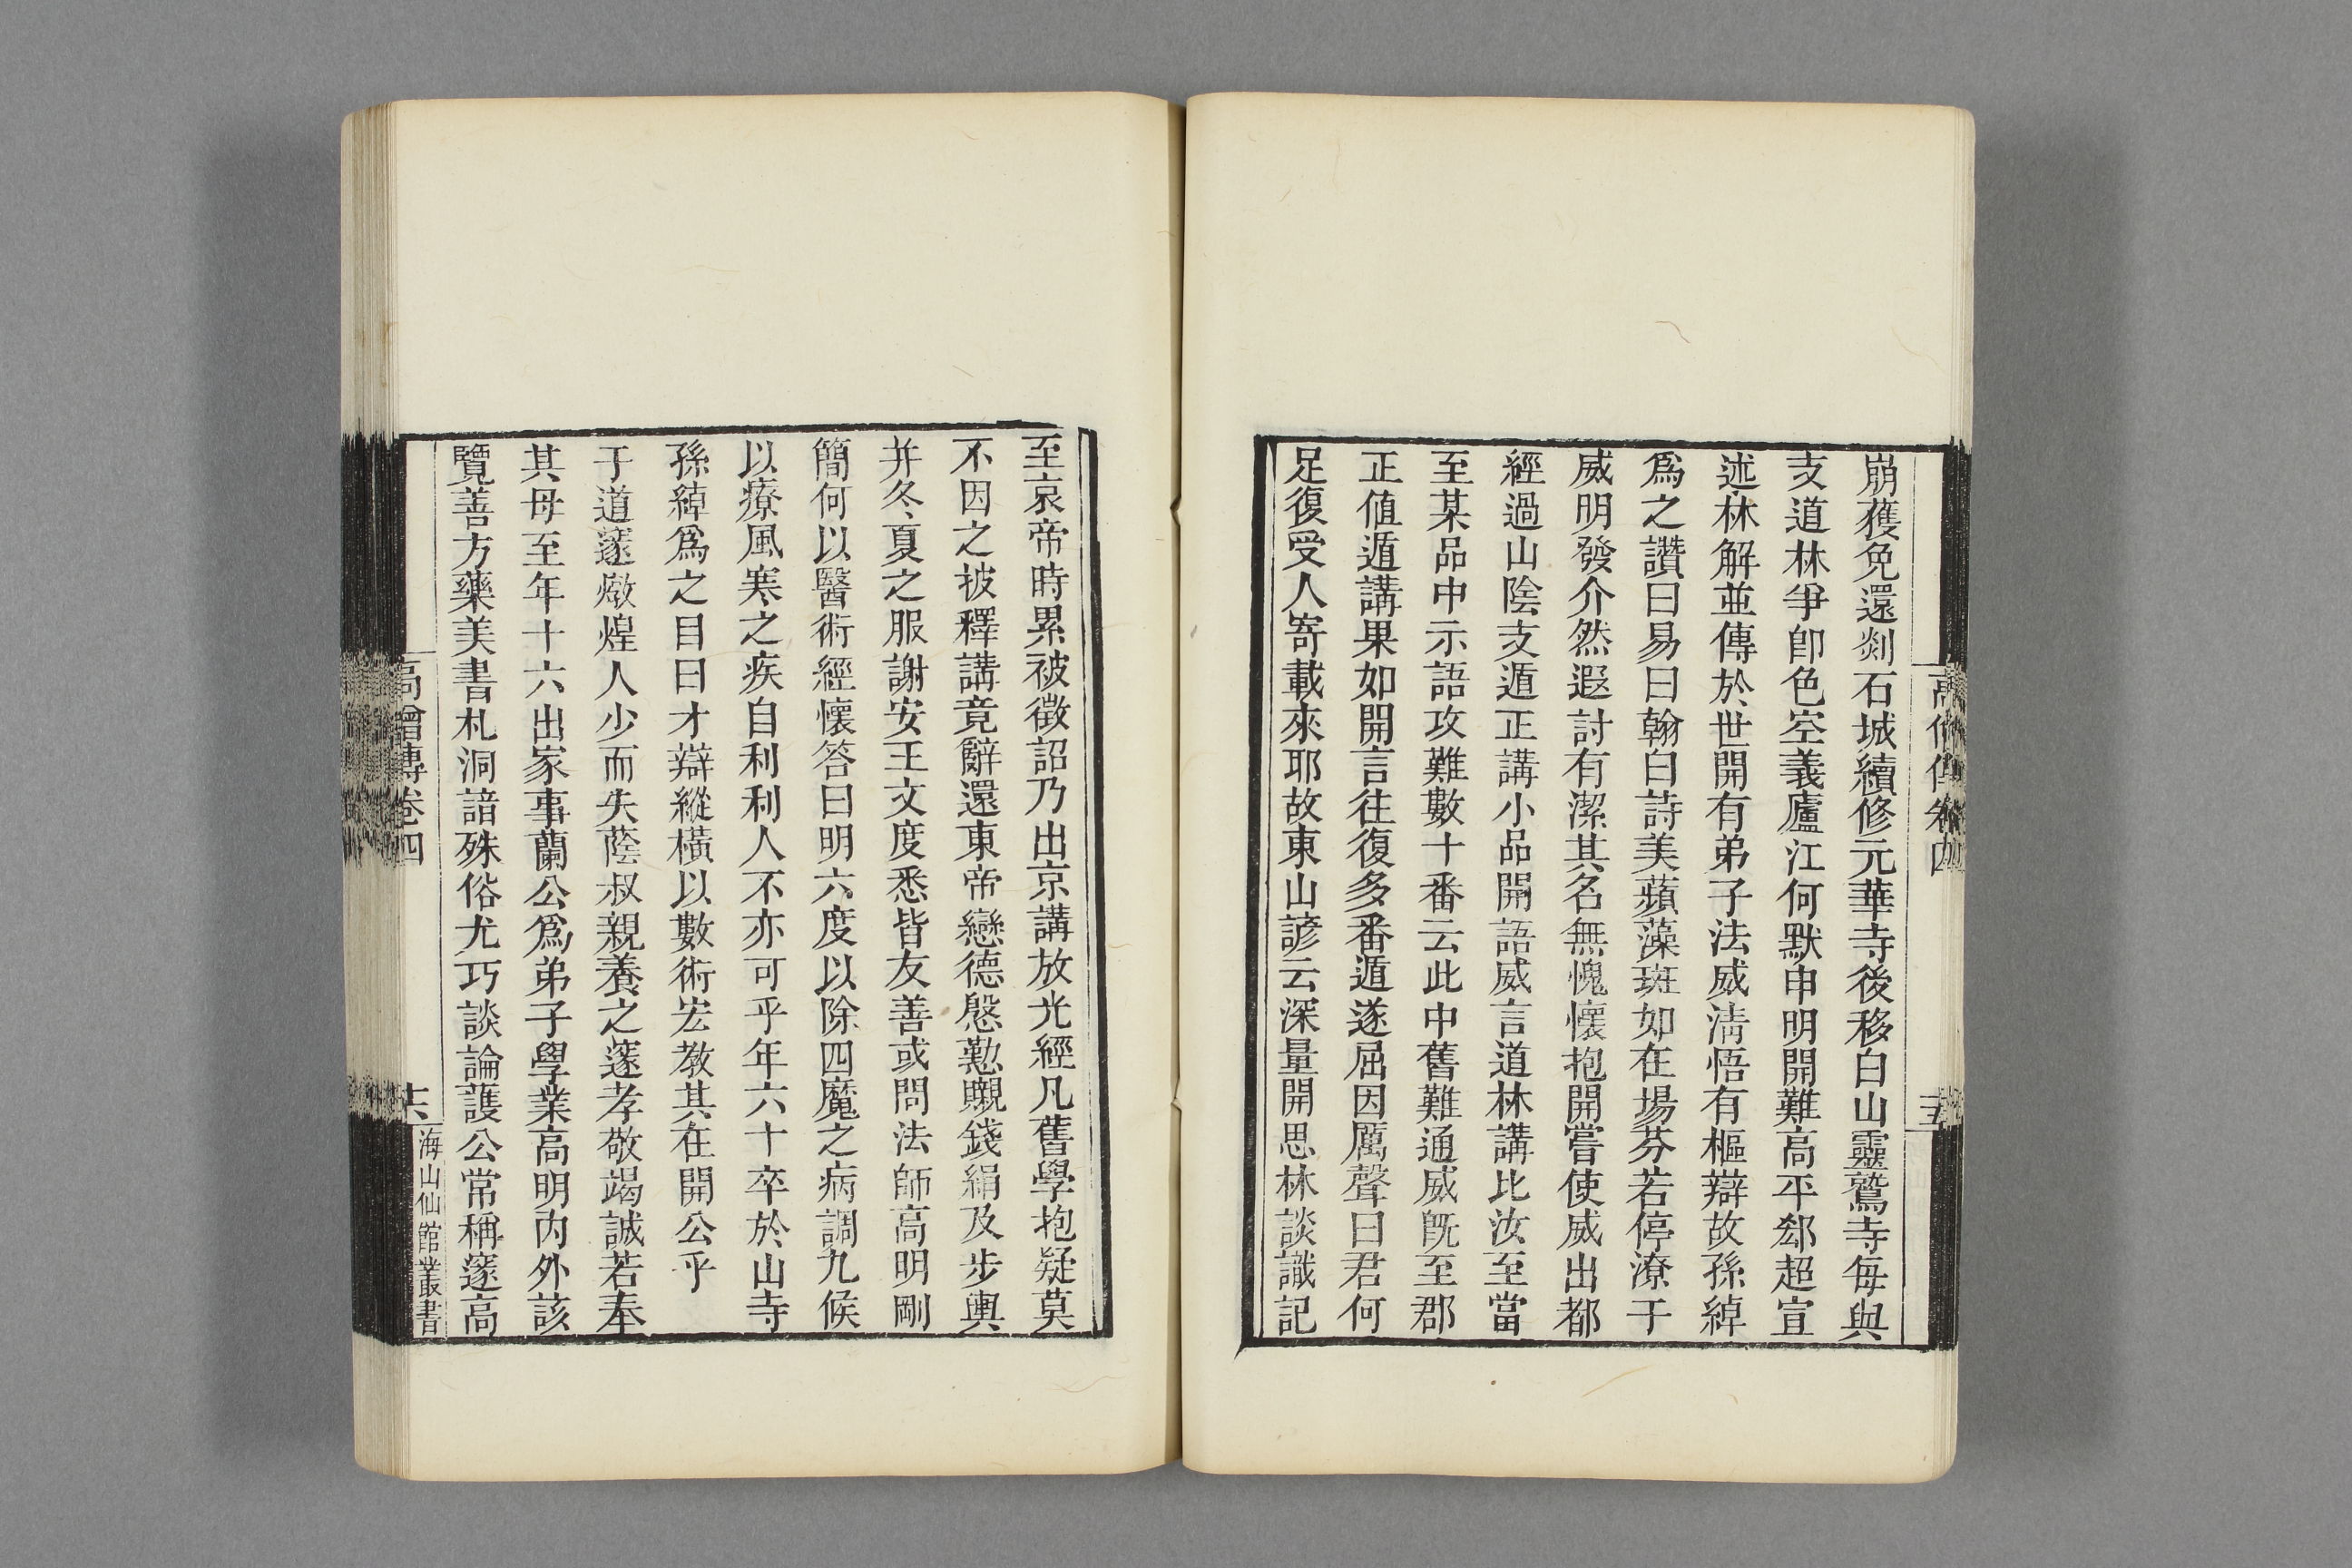 崩獲免還剡石城續修元華寺後移白山靈鷲寺每與
支道林爭卽色空義廬江何默申明開難高平郄超宣
述林解並傳於世開有弟子法威淸悟有樞辯故孫綽
爲之讚曰易曰翰白詩美蘋藻斑如在場芬若停潦于
威明發介然遐討有潔其名無愧懷抱開嘗使威出都
經過山陰支遁正講小品開語威言道林講比汝至當
至某品中示語攻難數十番云此中舊難通威旣至郡
正值遁講果如開言往復多番遁遂屈因厲聲曰君何
足復受人寄載來耶故東山諺云深量開思林談識記
高僧傳卷四
至哀帝時累被徵詔乃出京講放光經凡舊學抱疑莫
不因之披釋講竟辭還東帝戀德慇懃賵錢絹及步輿
并冬夏之服謝安王文度悉皆友善或問法師高明剛
簡何以醫術經懷答曰明六度以除四魔之病調九候
以療風寒之疾自利利人不亦可乎年六十卒於山寺
孫綽爲之目曰才辯縱橫以數術宏教其在開公乎
于道邃燉煌人少而失蔭叔親養之邃孝敬竭誠若奉
其母至年十六出家事蘭公爲弟子學業高明內外該
覽善方藥美書札洞諳殊俗尤巧談論護公常稱邃高
高僧傳卷四
海山仙館叢書